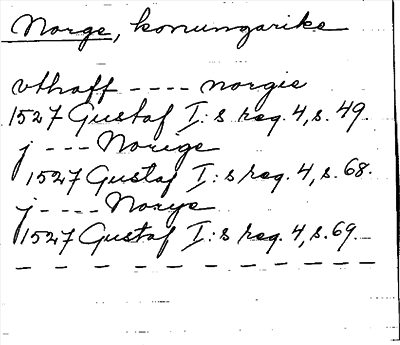 Norge, konungarike
vthaff ---- norgie
1527 Gustaf I:s reg. 4, s. 49.
j --- Norige
1527 Gustaf I:s reg. 4, s. 68.
j ---- Norye
1527 Gustaf I:s reg. 4, s. 69.